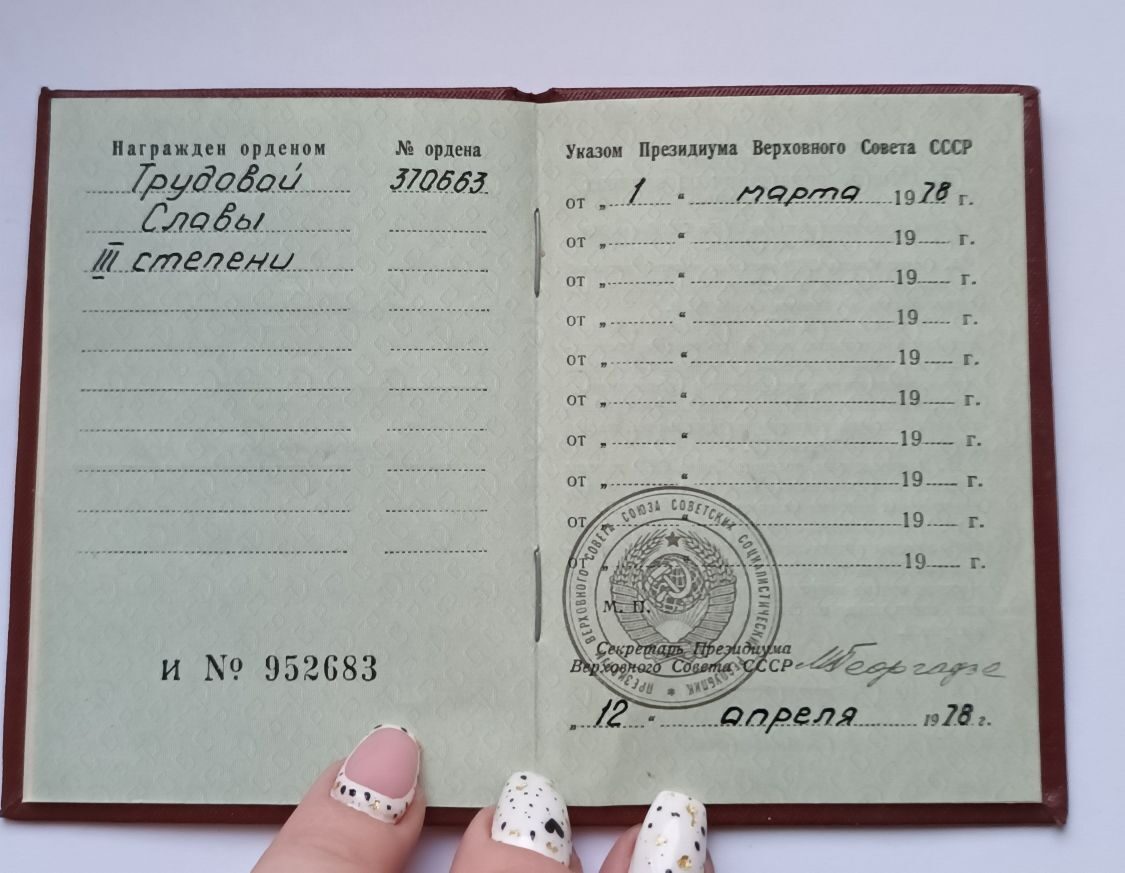 Награжден орденом
№ ордена
Трудовой
370663
Славы
III степени
и № 952683
Указом Президиума Верховного Совета СССР
от „ 1 “ марта 1978 г.
от „ “ 19 г.
от „ “ 19 г.
от „ “ 19 г.
от „ “ 19 г.
от „ “ 19 г.
от „ “ 19 г.
от „ “ 19 г.
от „ “ 19 г.
от „ “ 19 г.
ПРЕЗИДИУМ ВЕРХОВНОГО СОВЕТА СОЮЗА СОВЕТСКИХ СОЦИАЛИСТИЧЕСКИХ РЕСПУБЛИК
М. П.
Секретарь Президиума
Верховного Совета СССР МГеоргадзе
„ 12 “ апреля 1978 г.